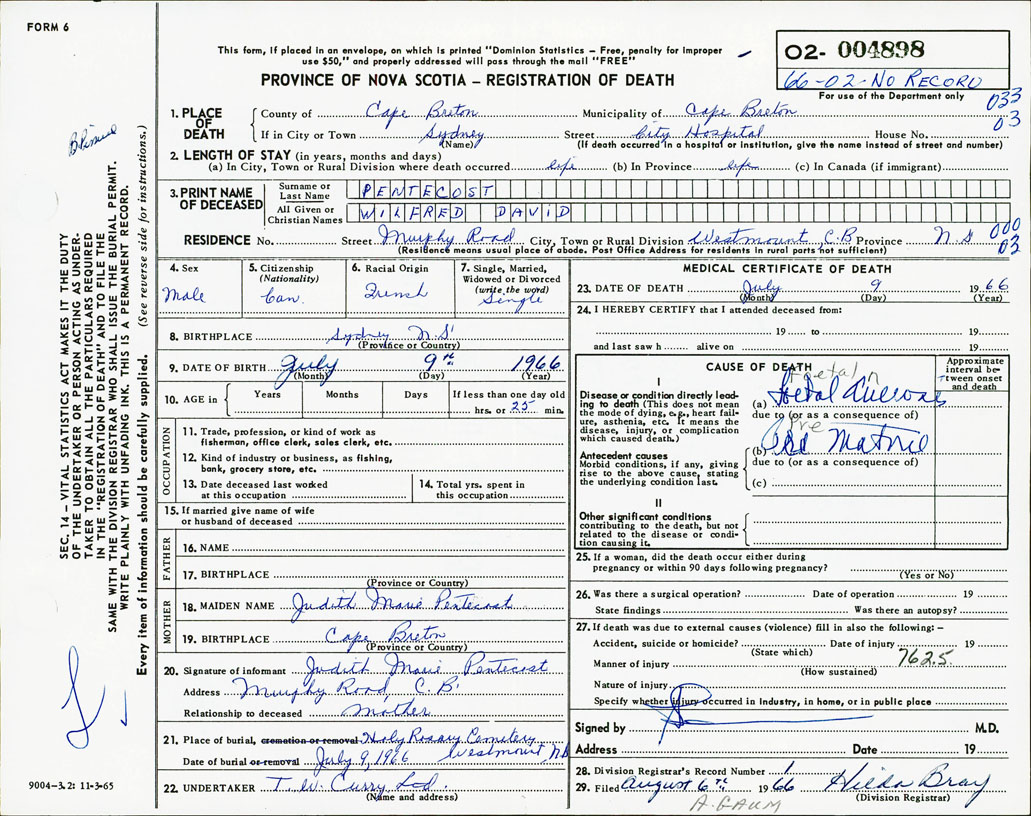 FORM 6
This form, if placed in an envelope, on which is printed "Dominion Statistics – Free, penalty for improper
use $50," and properly addressed will pass through the mail "FREE"
PROVINCE OF NOVA SCOTIA – REGISTRATION OF DEATH
02- 004898
66-02-NO RECORD
For use of the Department only
033
03
1. PLACE OF DEATH
County of Cape Breton Municipality of Cape Breton
If in City or Town Sydney Street City Hospital House No.
(Name) (If death occurred in a hospital or institution, give the name instead of street and number)
2. LENGTH OF STAY (in years, months and days)
(a) In City, Town or Rural Division where death occurred life (b) In Province life (c) In Canada (if immigrant)
3. PRINT NAME OF DECEASED
Surname or Last Name PENTECOST
All Given or Christian Names WILFRED DAVID
RESIDENCE No. Street Murphy Road City, Town or Rural Division Westmount, C.B Province N.S
(Residence means usual place of abode. Post Office Address for residents in rural parts not sufficient)
000
03
4. Sex
Male
5. Citizenship
(Nationality)
Can.
6. Racial Origin
French
7. Single, Married,
Widowed or Divorced
(write the word)
Single
8. BIRTHPLACE Sydney N.S
(Province or Country)
9. DATE OF BIRTH July 9th 1966
(Month) (Day) (Year)
10. AGE in Years Months Days If less than one day old
hrs. or 25 min.
OCCUPATION
11. Trade, profession, or kind of work as
fisherman, office clerk, sales clerk, etc.
12. Kind of industry or business, as fishing,
bank, grocery store, etc.
13. Date deceased last worked
at this occupation
14. Total yrs. spent in
this occupation
15. If married give name of wife
or husband of deceased
FATHER
16. NAME
17. BIRTHPLACE
(Province or Country)
MOTHER
18. MAIDEN NAME Judith Marie Pentecost
19. BIRTHPLACE Cape Breton
(Province or Country)
20. Signature of informant Judith Marie Pentecost
Address Murphy Road, C.B.
Relationship to deceased Mother
21. Place of burial, cremation or removal Holy Rosary Cemetery
Date of burial or removal July 9, 1966 Westmount
22. UNDERTAKER T. W. Curry Ltd.
(Name and address)
MEDICAL CERTIFICATE OF DEATH
23. DATE OF DEATH July 9 1966
(Month) (Day) (Year)
24. I HEREBY CERTIFY that I attended deceased from:
19 to 19
and last saw h alive on 19
CAUSE OF DEATH
Approximate interval between onset and death
I
Disease or condition directly leading to death (This does not mean the mode of dying, e.g., heart failure, asthenia, etc. It means the disease, injury, or complication which caused death.)
(a) Foetal
due to (or as a consequence of)
Antecedent causes
Morbid conditions, if any, giving rise to the above cause, stating the underlying condition last.
Pre
(b)
due to (or as a consequence of)
(c)
II
Other significant conditions
contributing to the death, but not
related to the disease or condition causing it.
25. If a woman, did the death occur either during
pregnancy or within 90 days following pregnancy?
(Yes or No)
26. Was there a surgical operation? Date of operation 19
State findings Was there an autopsy?
27. If death was due to external causes (violence) fill in also the following: –
Accident, suicide or homicide? Date of injury 19
(State which)
762.5
Manner of injury
(How sustained)
Nature of injury
Specify whether injury occurred in industry, in home, or in public place
Signed by M.D.
Address Date 19
28. Division Registrar's Record Number 1
29. Filed August 6th 1966 Hilda Bray
(Division Registrar)
A. GAUM
SEC. 14 – VITAL STATISTICS ACT MAKES IT THE DUTY
OF THE UNDERTAKER OR PERSON ACTING AS UNDER-
TAKER TO OBTAIN ALL THE PARTICULARS REQUIRED
IN THE "REGISTRATION OF DEATH" AND TO FILE THE
SAME WITH THE DIVISION REGISTRAR WHO SHALL ISSUE THE BURIAL PERMIT.
WRITE PLAINLY WITH UNFADING INK. THIS IS A PERMANENT RECORD.
Every item of information should be carefully supplied. (See reverse side for instructions.)
9004-3.2: 11-3-65